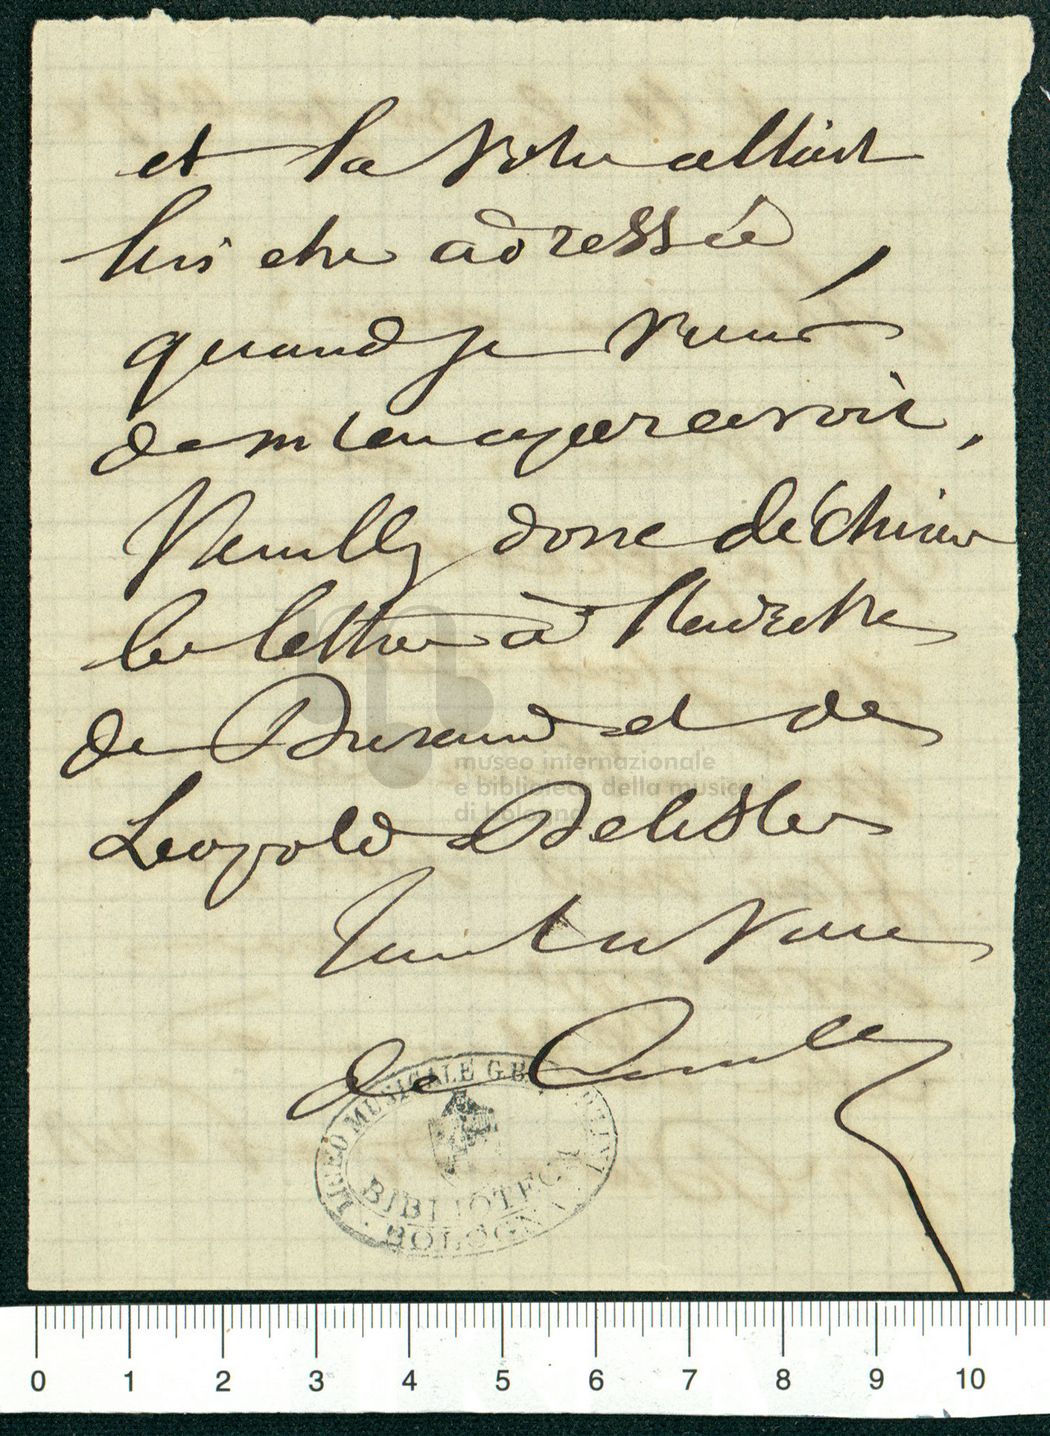 et la votre allait
lui etre adressée
quand je viens
de m'en apercevoir,
Veuillez donc déchirer
la lettre à l'adresse
de Durand et de
Leopold Delisle
Tout à vous
de
museo internazionale
e biblioteca della musica
di bologna
LICEO MUSICALE G.B. MARTINI
BIBLIOTECA
BOLOGNA
0 1 2 3 4 5 6 7 8 9 10